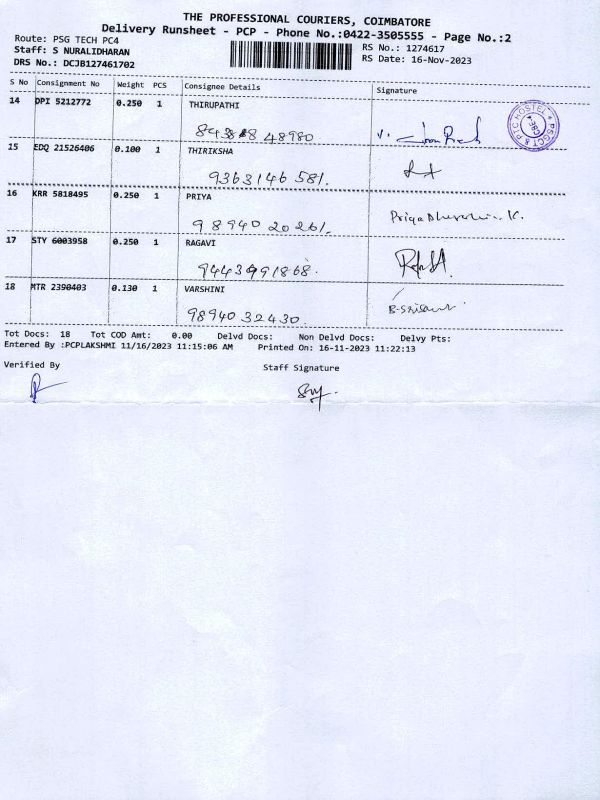 THE PROFESSIONAL COURIERS, COIMBATORE
Delivery Runsheet - PCP - Phone No.:0422-3505555 - Page No.:2
Route: PSG TECH PC4
RS No.: 1274617
Staff: S NURALIDHARAN
RS Date: 16-Nov-2023
DRS No.: DCJB127461702
S No Consignment No Weight PCS Consignee Details Signature
14 DPI 5212772 0.250 1 THIRUPATHI
48980
15 EDQ 21526406 0.100 1 THIRIKSHA
9363146581.
16 KRR 5818495 0.250 1 PRIYA
9894020261.
17 STY 6003958 0.250 1 RAGAVI
18 MTR 2390403 0.130 1 VARSHINI
9894032430
Tot Docs: 18 Tot COD Amt: 0.00 Delvd Docs: Non Delvd Docs: Delvy Pts:
Entered By :PCPLAKSHMI 11/16/2023 11:15:06 AM Printed On: 16-11-2023 11:22:13
Verified By
Staff Signature